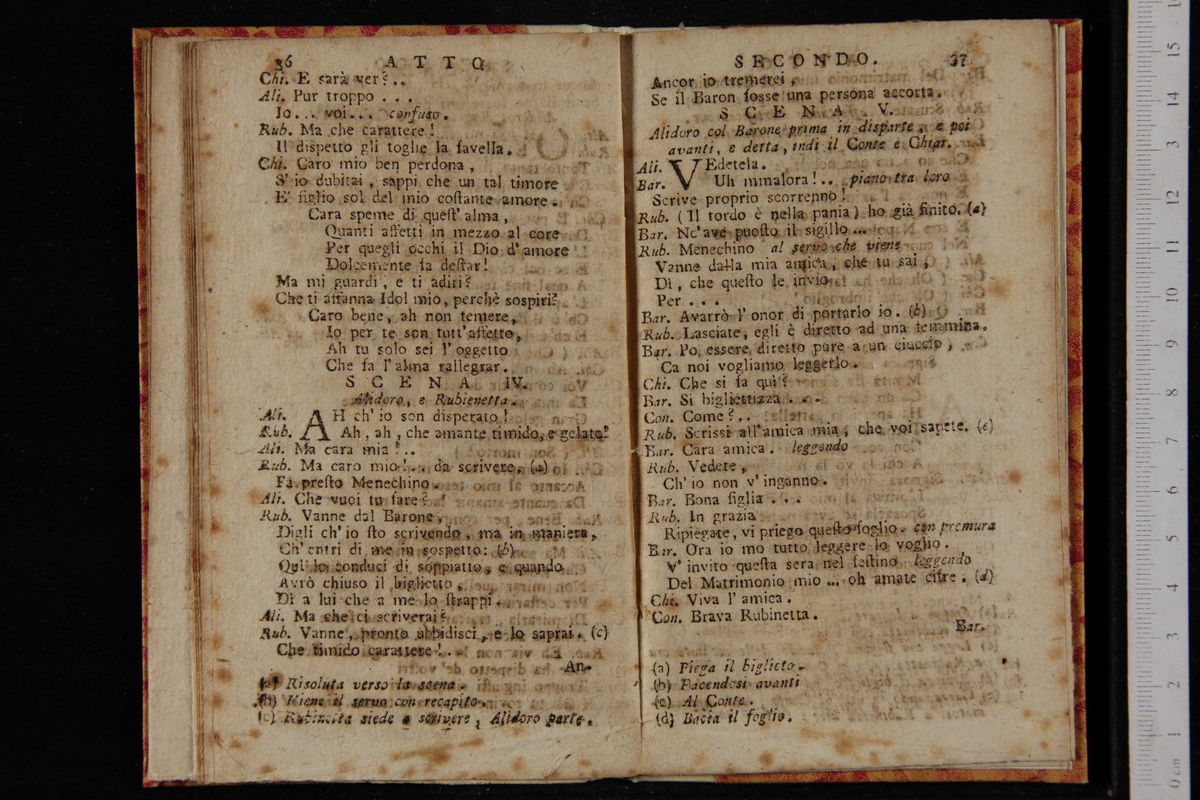 36 ATTO
Chi. E sarà ver?..
Ali. Pur troppo ...
Io... voi... confuso.
Rub. Ma che carattere!
Il dispetto gli toglie la favella.
Chi. Caro mio ben perdona,
S' io dubitai, sappi che un tal timore
E' figlio sol del mio costante amore.
Cara speme di quest' alma,
Quanti affetti in mezzo al core
Per quegli occhi il Dio d'amore
Dolcemente fa destar!
Ma mi guardi, e ti adiri?
Che ti affanna Idol mio, perchè sospiri?
Caro bene, ah non temere,
Io per te son tutt'affetto,
Ah tu solo sei l'oggetto
Che fa l'alma rallegrar.
SCENA IV.
Alidoro, e Rubienetta.
Ali. AH ch'io son disperato!
Rub. Ah, ah, che amante timido, e gelato!
Ali. Ma cara mia!..
Rub. Ma caro mio!... da scrivere. (a)
Fa presto Menechino.
Ali. Che vuoi tu fare?
Rub. Vanne dal Barone,
Digli ch'io sto scrivendo, ma in maniera,
Ch'entri di me in sospetto: (b)
Qui lo conduci di soppiatto, e quando
Avrò chiuso il biglietto,
Dì a lui che a me lo strappi.
Ali. Ma che ci scriverai?
Rub. Vanne, pronto ubbidisci, e lo saprai. (c)
Che timido carattere!..
An-
(a) Risoluta verso la scena.
(b) Viene il servo con recapito.
(c) Rubinetta siede a scrivere, Alidoro parte.
SECONDO. 37
Ancor io tremerei,
Se il Baron fosse una persona accorta.
SCENA V.
Alidoro col Barone prima in disparte, e poi
avanti, e detta, indi il Conte e Chiar.
Ali. VEdetela.
Bar. Uh mmalora!.. piano tra loro
Scrive proprio scorrenno!
Rub. (Il tordo è nella pania) ho già finito. (a)
Bar. Nc'ave puosto il sigillo...
Rub. Menechino al servo che viene
Vanne dalla mia amica, che tu sai,
Dì, che questo le invio
Per ...
Bar. Avarrò l'onor di portarlo io. (b)
Rub. Lasciate, egli è diretto ad una femmina.
Bar. Po essere diretto pure a un ciuccio,
Ca noi vogliamo leggerlo.
Chi. Che si fa quì?
Bar. Si bigliettizza ...
Con. Come?..
Rub. Scrissi all'amica mia, che voi sapete. (c)
Bar. Cara amica. leggendo
Rub. Vedete,
Ch'io non v'inganno.
Bar. Bona figlia ...
Rub. In grazia
Ripiegate, vi priego questo foglio. con premura
Bar. Ora io mo tutto leggere lo voglio.
V'invito questa sera nel festino leggendo
Del Matrimonio mio ... oh amate cifre. (d)
Chi. Viva l'amica.
Con. Brava Rubinetta.
Bar.
(a) Piega il biglieto.
(b) Facendosi avanti
(c) Al Conte.
(d) Bacia il foglio.